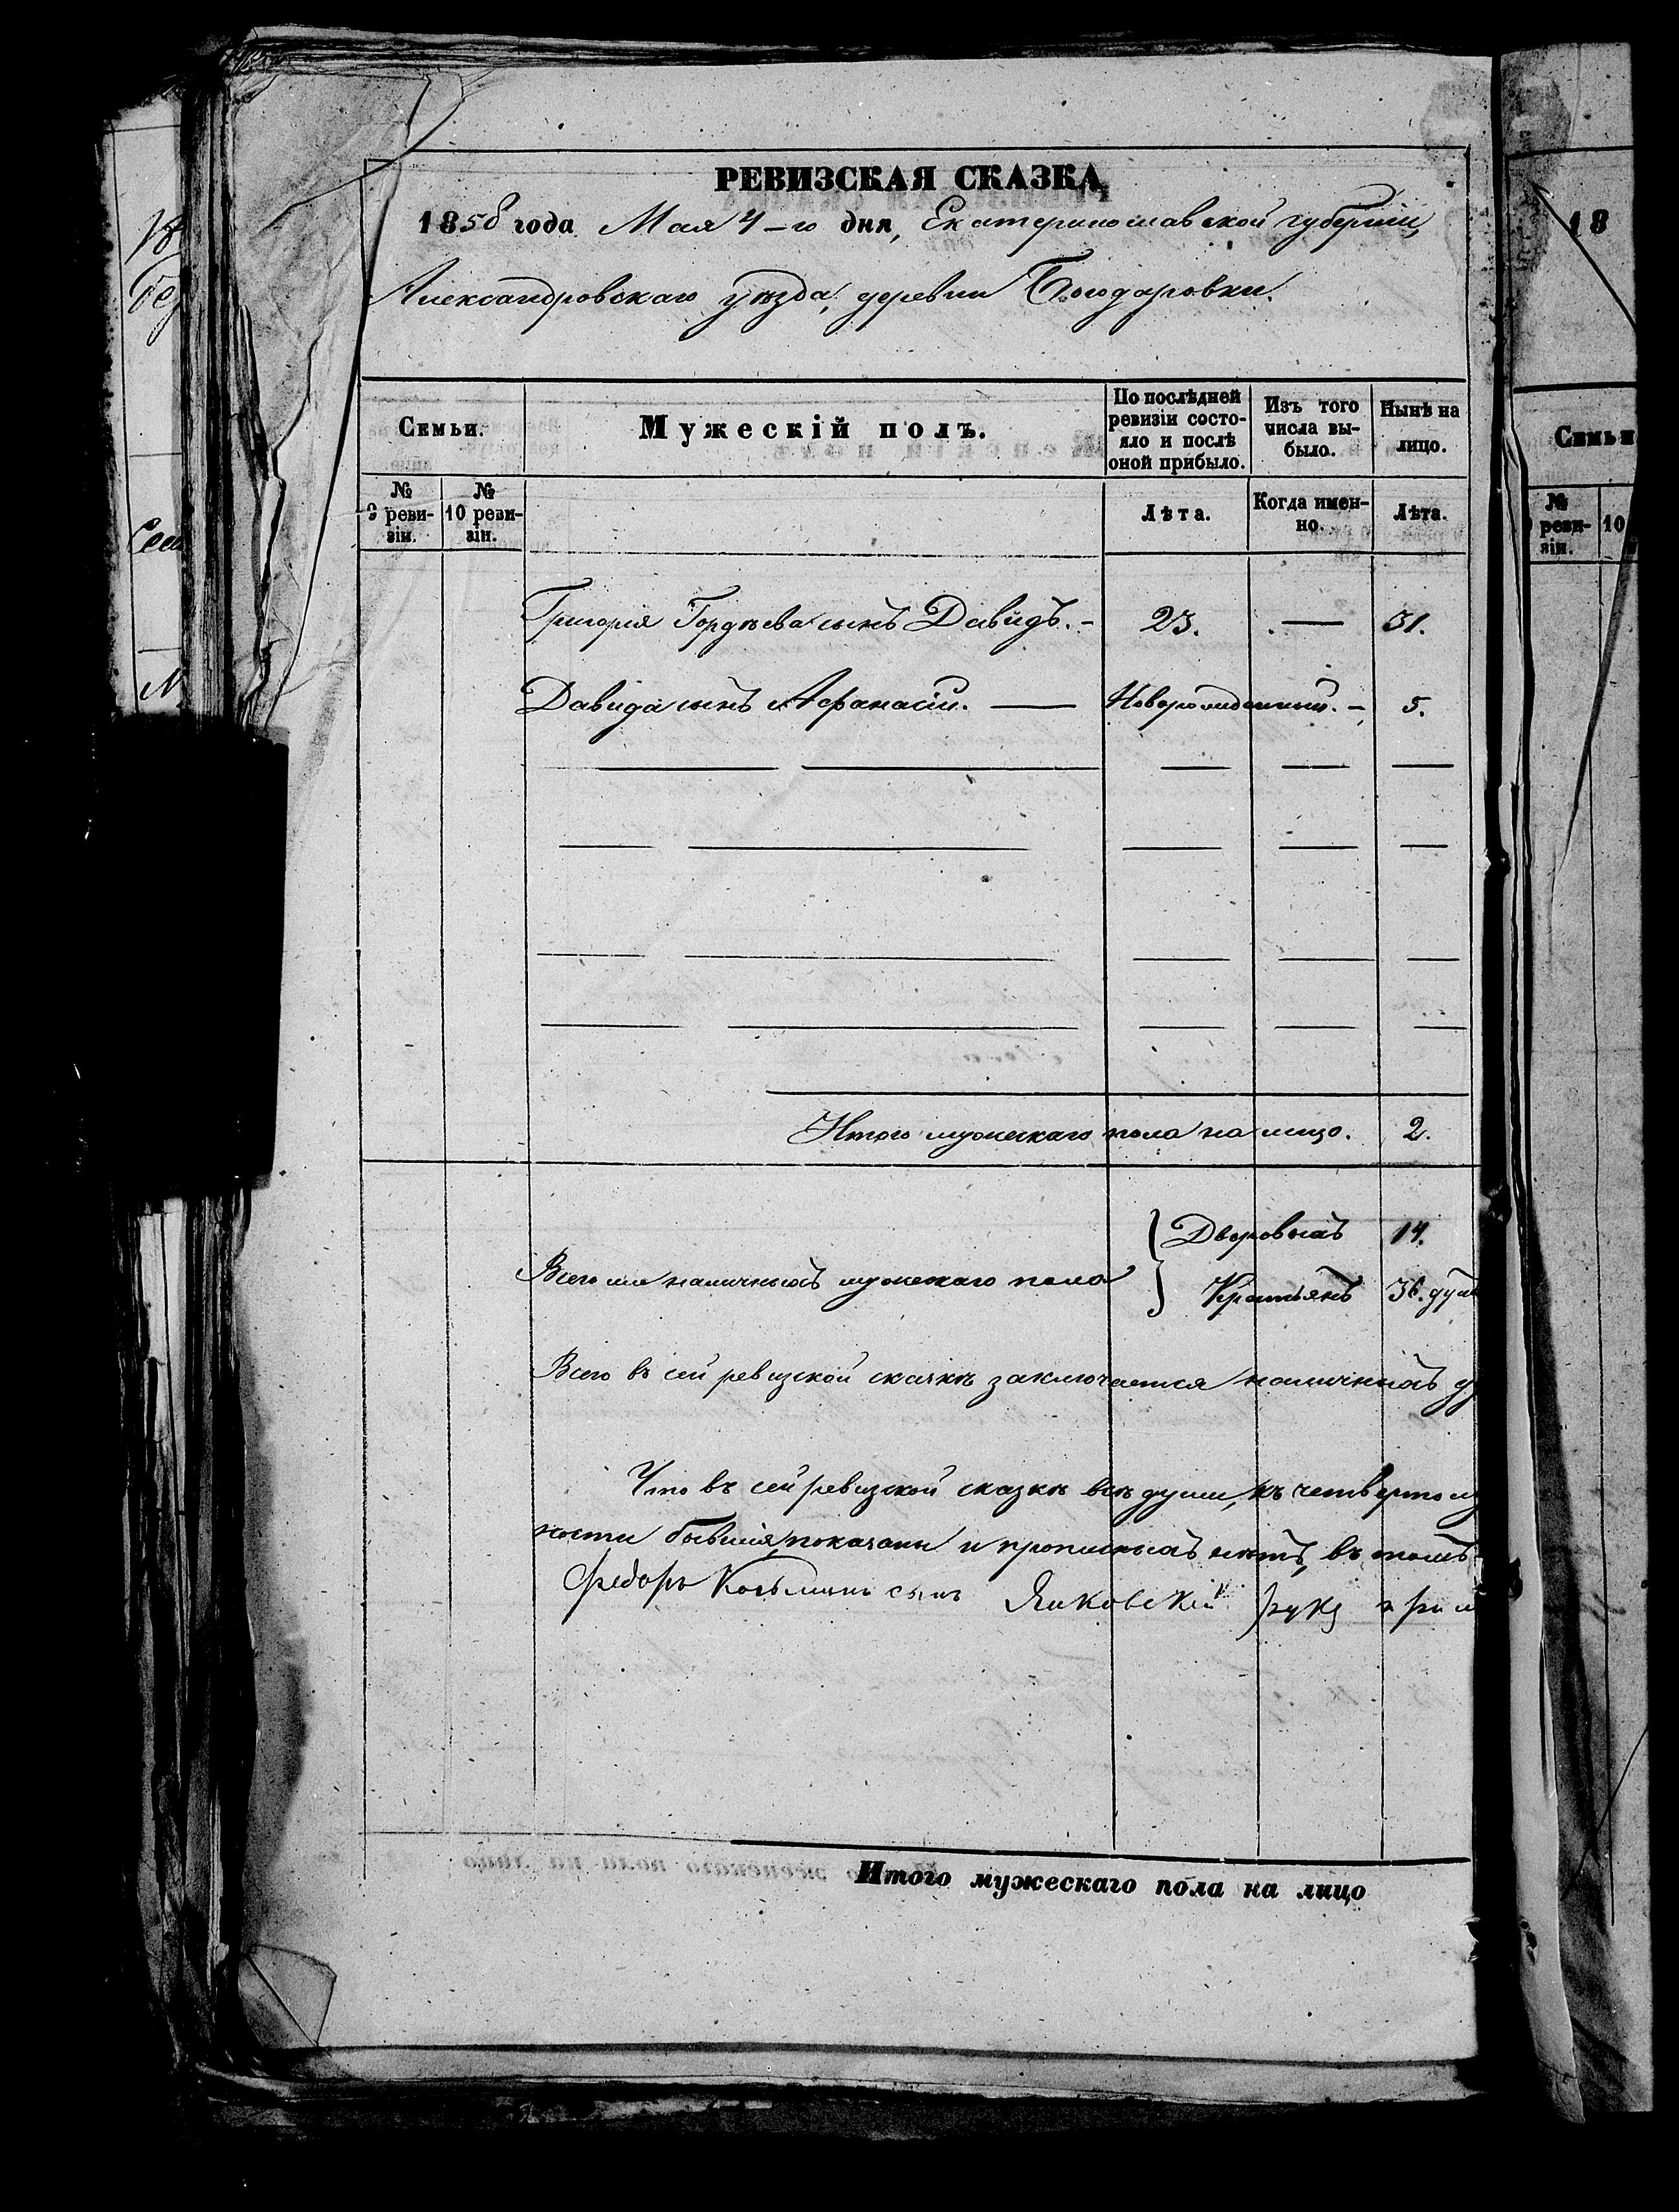 РЕВИЗСКАЯ СКАЗКА
1858 года Мая 4-го дня, Екатеринославской губерніи,
Александровскаго уѣзда, деревни Богодаровки.
Семьи.
Мужескій полъ.
По послѣдней ревизіи состояло и послѣ оной прибыло.
Изъ того числа выбыло.
Нынѣ на лицо.
№ 9 ревизіи.
№ 10 ревизіи.
Лѣта.
Когда именно.
Лѣта.
Григорія Гордѣева сынъ Давидъ. - 23. — 31.
Давида сынъ Афанасій. — Новорожденный. - 5.
Итого мужескаго пола на лицо. 2.
Дворовыхъ 14.
Всего наличныхъ мужескаго пола
Крестьянъ 36. душъ
Всего въ сей ревизской сказкѣ заключается наличныхъ
Что въ сей ревизской сказкѣ всѣ души, къ
ности бывшія, показаны и прописныхъ нѣтъ, въ томъ
Федоръ Козьминъ сынъ Янковскій руку
Итого мужескаго пола на лицо
18
Семьи
№
реви-
зіи.
10